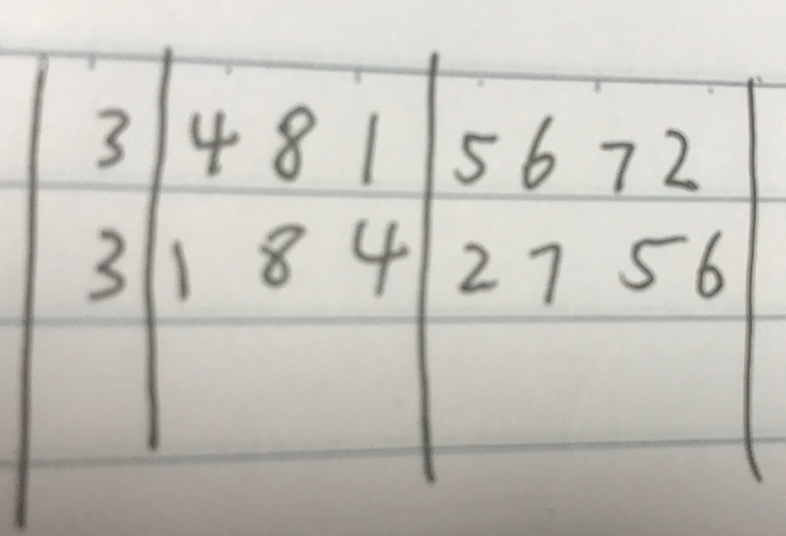 3 4 8 1 5 6 7 2
3 1 8 4 2 7 5 6